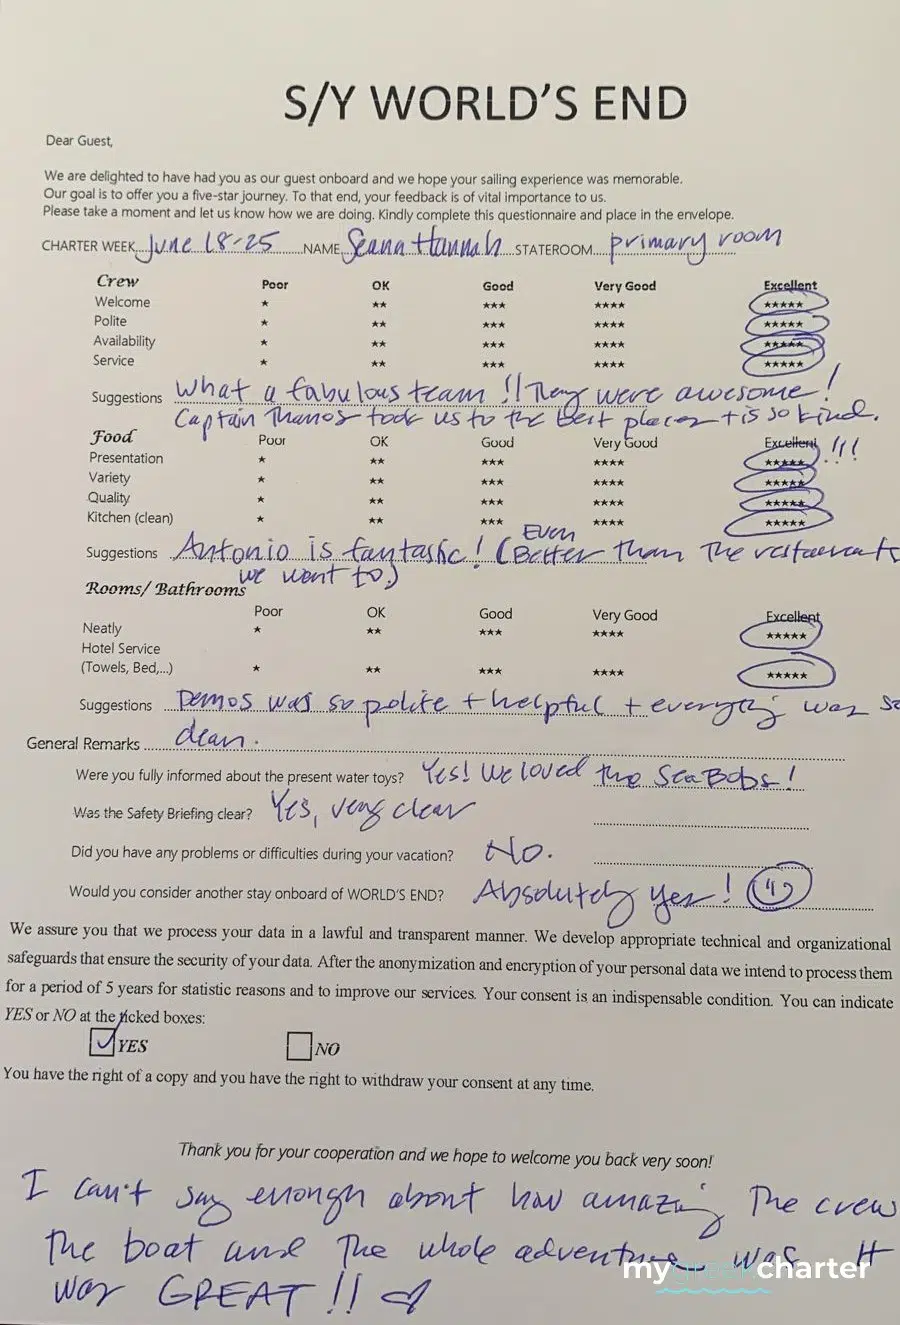 S/Y WORLD'S END
Dear Guest,
We are delighted to have had you as our guest onboard and we hope your sailing experience was memorable.
Our goal is to offer you a five-star journey. To that end, your feedback is of vital importance to us.
Please take a moment and let us know how we are doing. Kindly complete this questionnaire and place in the envelope.
CHARTER WEEK June 18-25 NAME Seana Hannah STATEROOM primary room
Crew Poor OK Good Very Good Excellent
Welcome ★ ★★ ★★★ ★★★★ ★★★★★
Polite ★ ★★ ★★★ ★★★★ ★★★★★
Availability ★ ★★ ★★★ ★★★★ ★★★★★
Service ★ ★★ ★★★ ★★★★ ★★★★★
Suggestions What a fabulous team!! They were awesome!
Captain Thanos took us to the best places + is so kind.
Food Poor OK Good Very Good Excellent !!!
Presentation ★ ★★ ★★★ ★★★★ ★★★★★
Variety ★ ★★ ★★★ ★★★★ ★★★★★
Quality ★ ★★ ★★★ ★★★★ ★★★★★
Kitchen (clean) ★ ★★ ★★★ ★★★★ ★★★★★
Suggestions Antonio is fantastic! (Even Better than the restaurants
we went to)
Rooms/ Bathrooms
Poor OK Good Very Good Excellent
Neatly ★ ★★ ★★★ ★★★★ ★★★★★
Hotel Service
(Towels, Bed,...) ★ ★★ ★★★ ★★★★ ★★★★★
Suggestions Demos was so polite + helpful + everything was so
General Remarks clean.
Were you fully informed about the present water toys? Yes! We loved the SeaBobs!
Was the Safety Briefing clear? Yes, very clear
Did you have any problems or difficulties during your vacation? No.
Would you consider another stay onboard of WORLD'S END? Absolutely yes!
We assure you that we process your data in a lawful and transparent manner. We develop appropriate technical and organizational
safeguards that ensure the security of your data. After the anonymization and encryption of your personal data we intend to process them
for a period of 5 years for statistic reasons and to improve our services. Your consent is an indispensable condition. You can indicate
YES or NO at the ticked boxes:
YES NO
You have the right of a copy and you have the right to withdraw your consent at any time.
Thank you for your cooperation and we hope to welcome you back very soon!
I can't say enough about how amazing the crew
the boat and the whole adventure was It
was GREAT!! ♡
mygreekcharter